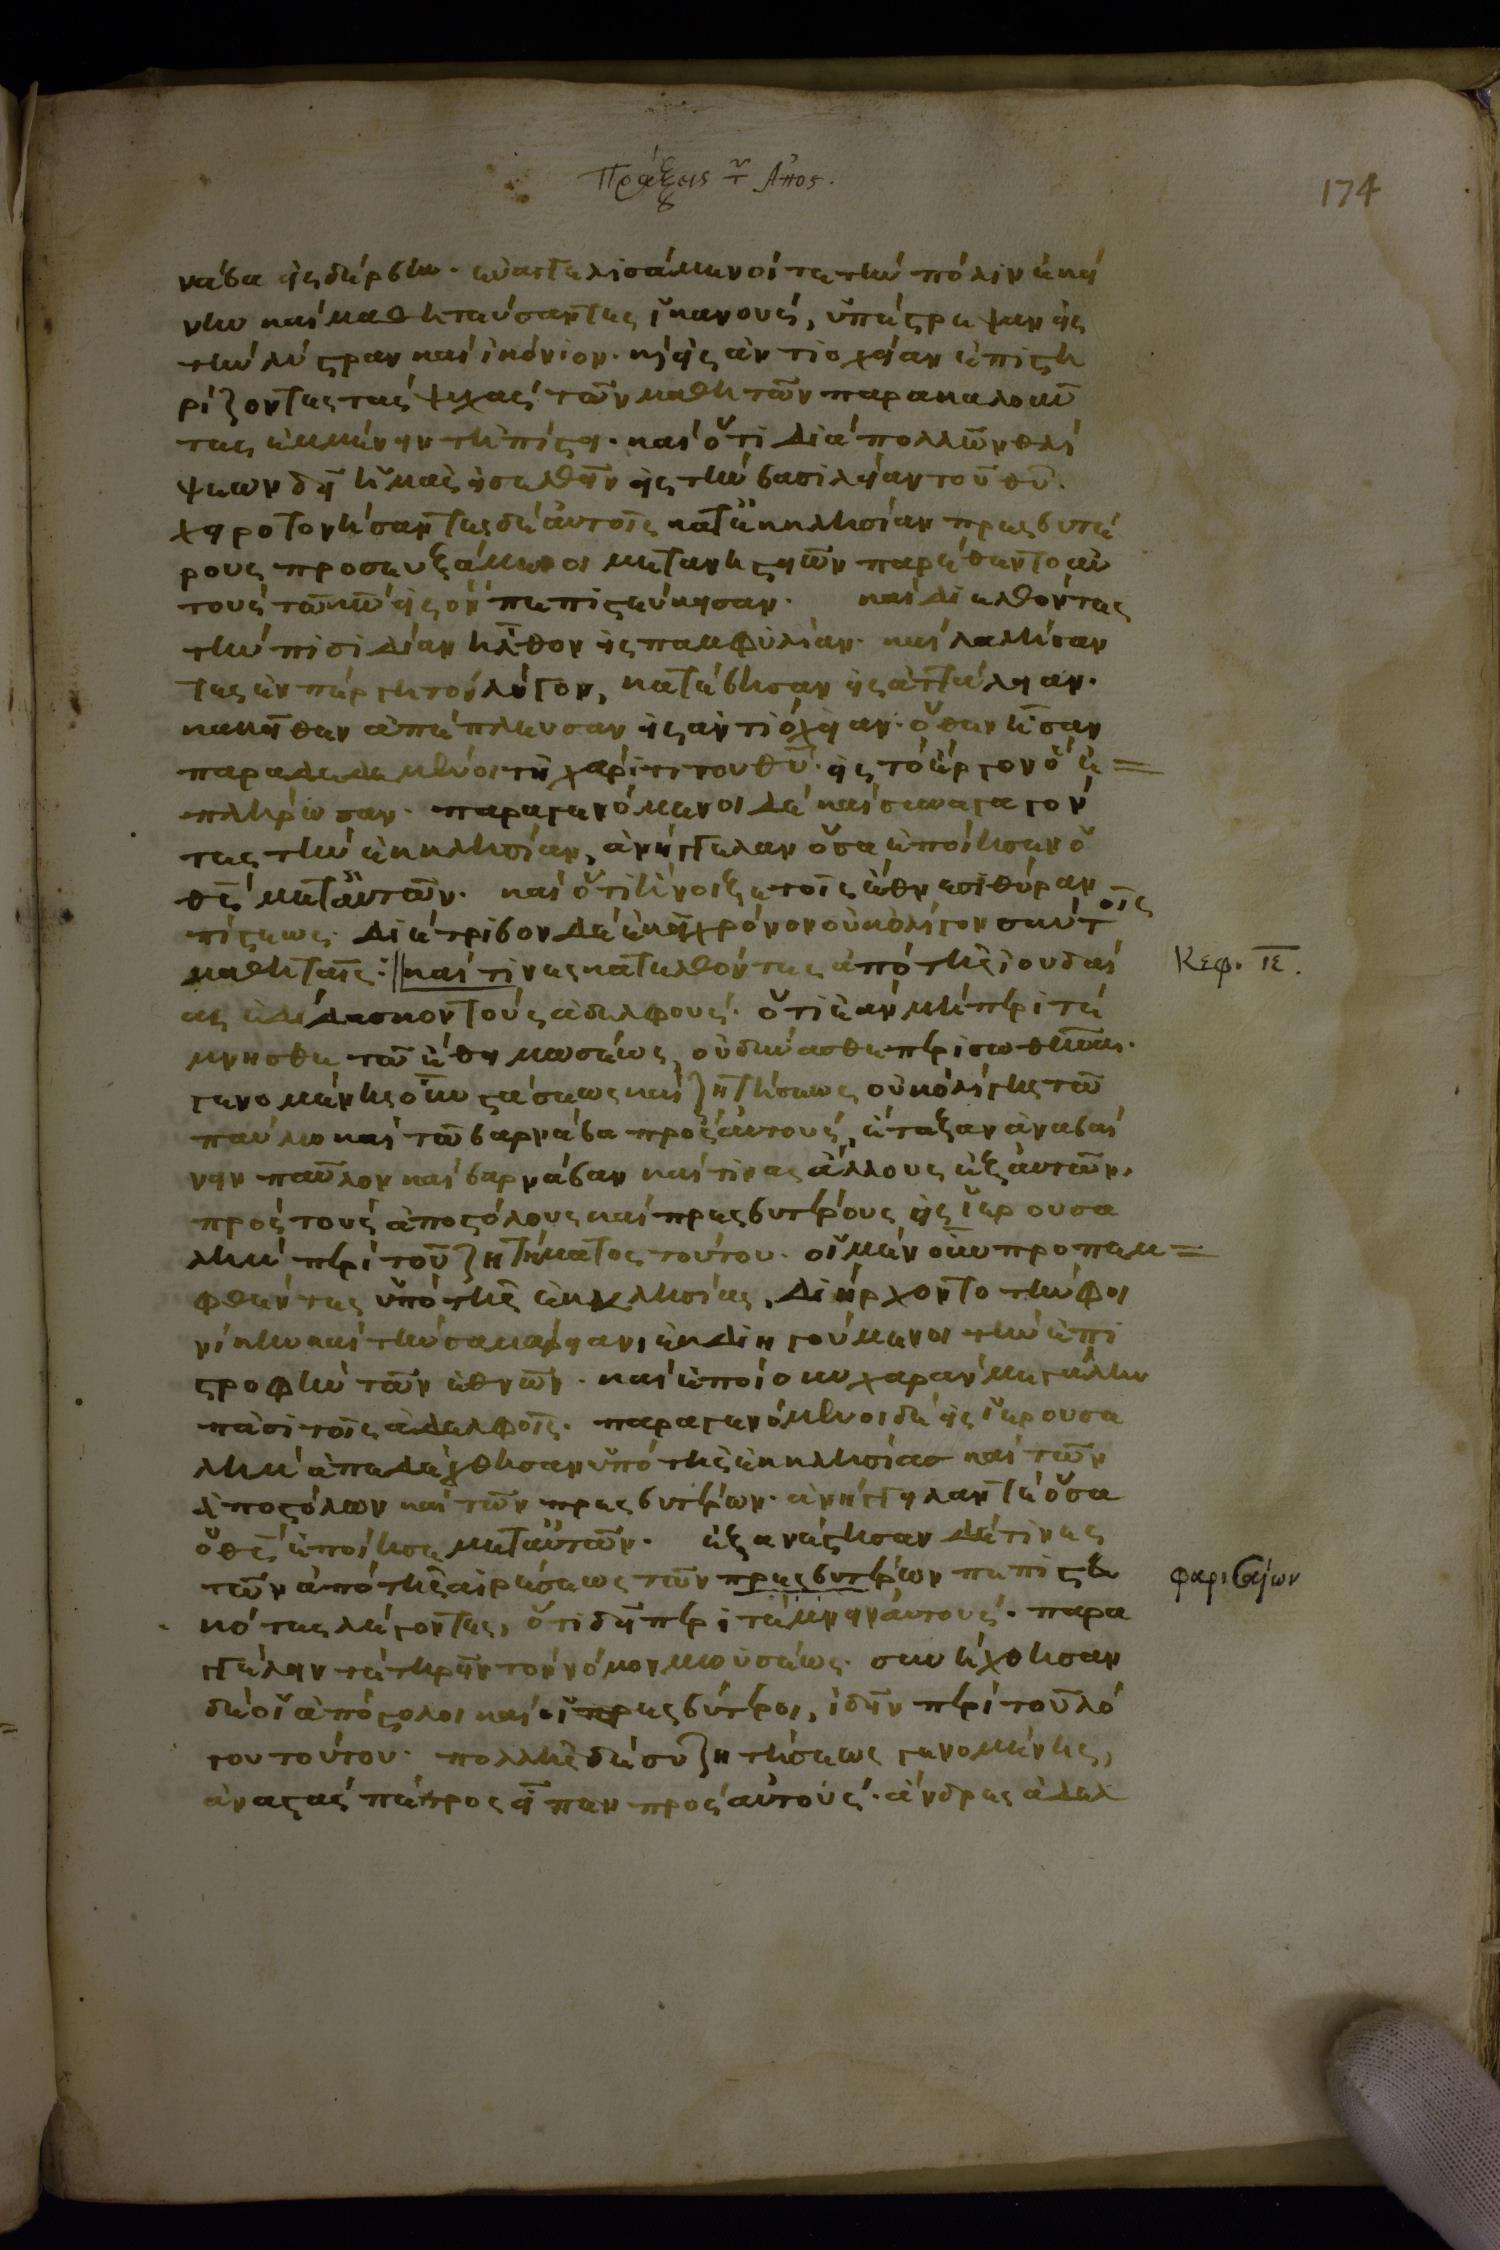 Πράξεις τ Απος.
174
νάβα εἰς δέρβην. εὐαγγελισάμενοί τε τὴν πόλιν ἐκεί
νην καὶ μαθητεύσαντες ἱκανοὺς, ὑπέστρεψαν εἰς
τὴν λύστραν καὶ ἰκόνιον. κ εἰς ἀντιοχείαν ἐπιστη
ρίζοντες τὰς ψυχὰς τῶν μαθητῶν παρακαλοῦν
τες ἐμμένειν τῆ πίστει. καὶ ὅτι διὰ πολλῶν θλί
ψεων δεῖ ἡμᾶς εἰσελθεῖν εἰς τὴν βασιλείαν τοῦ θυ.
χειροτονήσαντες δὲ αὐτοῖς κατ ἐκκλησίαν πρεσβυτέ
ρους προσευξάμενοι μετὰ νηστειῶν παρέθεντο αὐ
τοὺς τῶ κω εἰς ὃν πεπιστεύκησαν. καὶ διελθόντες
τὴν πισιδίαν ἦλθον εἰς παμφυλίαν. καὶ λαλήσαν
τες ἐν πέργη τὸν λόγον, κατέβησαν εἰς ἀττάλειαν.
κακεῖθεν ἀπέπλευσαν εἰς αντιόχειαν. ὅθεν ἦσαν
παραδεδομένοι τῆ χάριτι του θυ. εἰς τὸ ἔργον ὃ ἐ=
πλήρωσαν. παραγενόμενοι δὲ καὶ συναγαγόν
τες τὴν ἐκκλησίαν, ἀνήγγελαν ὅσα ἐποίησεν ὁ
θς μετ αὐτῶν. καὶ ὅτι ἤνοιξε τοῖς ἔθνεσι θύραν
πίστεως. διέτριβον δὲ ἐκεῖ χρόνον οὐκ ὀλίγον σὺν τοῖς
μαθηταῖς: καὶ τινες κατελθόντες ἀπὸ τῆς ἰουδαί
ας ἐδίδασκον τοὺς ἀδελφούς. ὅτι ἐὰν μὴ περιτέ
μνησθε τῶ ἔθει μωσέως, οὐ δύνασθε περισωθῆναι.
γενομένης οὖν στάσεως καὶ ζητήσεως οὐκ ὀλίγης τῶ
παύλω καὶ τῶ βαρνάβα πρὸς αὐτοὺς, ἔταξαν ἀναβαί
νειν παῦλον καὶ βαρνάβαν καὶ τινας ἄλλους ἐξ αὐτῶν,
πρὸς τοὺς ἀποστόλους καὶ πρεσβυτέρους εἰς ἱερουσα
λὴμ περὶ τοῦ ζητήματος τούτου. οἱ μὲν οὖν προπεμ=
φθέντες ὑπὸ τῆς ἐκκλησίας, διήρχοντο τὴν φοι
νίκην καὶ τὴν σαμαρειαν, ἐκδιηγούμενοι τὴν ἐπι
στροφὴν τῶν ἐθνῶν. καὶ ἐποίουν χαραν μεγάλην
πᾶσι τοῖς ἀδελφοῖς. παραγενόμενοι δὲ εἰς ἱερουσα
λὴμ ἀπεδέχθησαν ὑπὸ τῆς ἐκκλησίας καὶ τῶν
ἀποστόλων καὶ τῶν πρεσβυτέρων. ἀνήγγειλάν τε ὅσα
ὁ θς ἐποίησε μετ αὐτῶν. ἐξανέστησαν δέ τινες
τῶν ἀπὸ τῆς αἱρέσεως τῶν πρεσβυτέρων πεπιστευ
κότες λέγοντες, ὅτι δεῖ περιτέμνειν αὐτούς. παρα
γγέλειν τὲ τηρεῖν τὸν νόμον μωυσέως. συνήχθησαν
δὲ οἱ ἀπόστολοι καὶ οἱ πρεσβύτεροι, ἰδεῖν περὶ τοῦ λό
γου τούτου. πολλῆς δὲ συζητήσεως γενομένης,
ἀναστὰς πέτρος εἶπεν πρὸς αὐτούς. ἄνδρες ἀδελ
Κεφ. ιε.
φαρισαίων